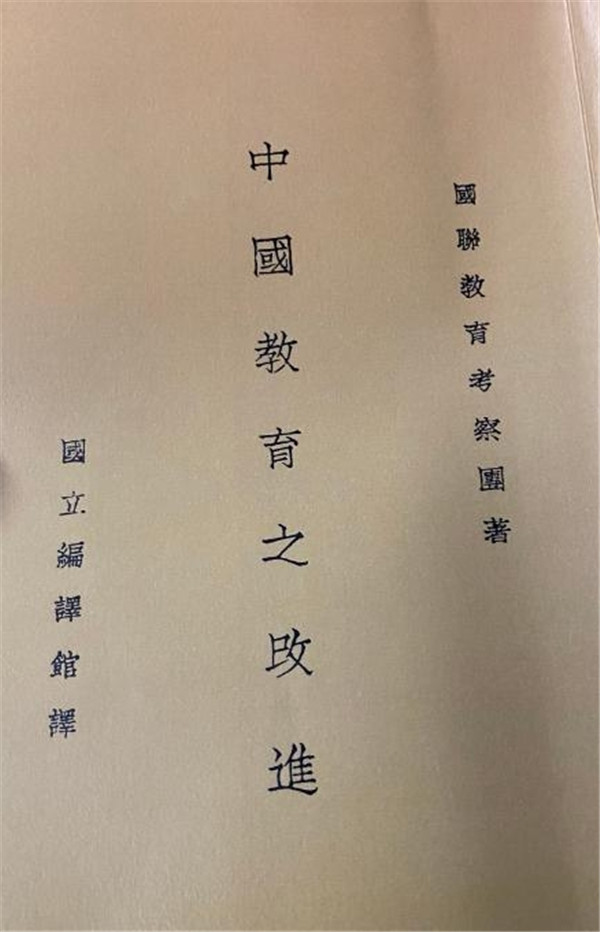 國聯教育考察團著
中國教育之改進
國立編譯館譯